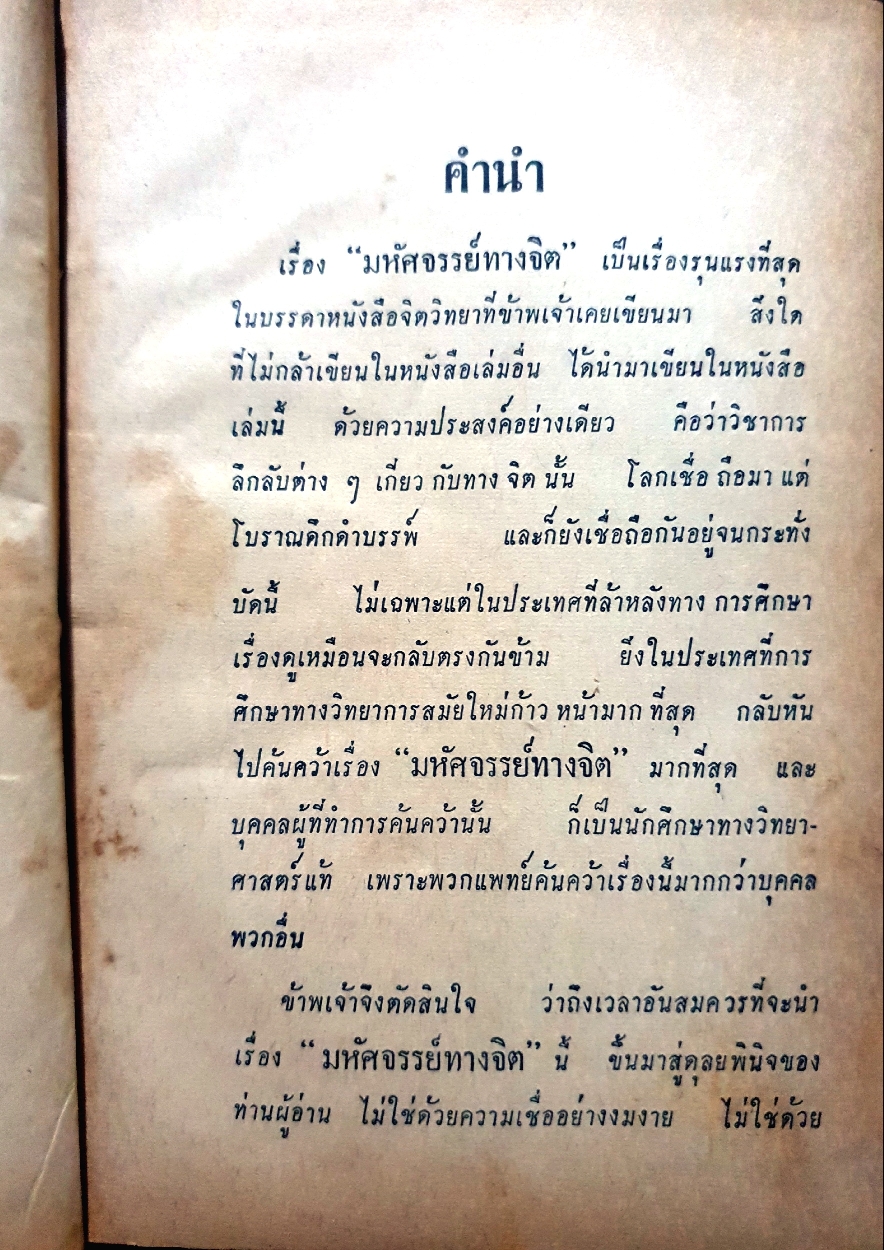 คำนำ
เรื่อง “มหัศจรรย์ทางจิต” เป็นเรื่องรุนแรงที่สุด
ในบรรดาหนังสือจิตวิทยาที่ข้าพเจ้าเคยเขียนมา สิ่งใด
ที่ไม่กล้าเขียนในหนังสือเล่มอื่น ได้นำมาเขียนในหนังสือ
เล่มนี้ ด้วยความประสงค์อย่างเดียว คือว่าวิชาการ
ลึกลับต่าง ๆ เกี่ยว กับทาง จิต นั้น โลกเชื่อ ถือมา แต่
โบราณดึกดำบรรพ์ และก็ยังเชื่อถือกันอยู่จนกระทั่ง
บัดนี้ ไม่เฉพาะแต่ในประเทศที่ล้าหลังทาง การศึกษา
เรื่องดูเหมือนจะกลับตรงกันข้าม ยิ่งในประเทศที่การ
ศึกษาทางวิทยาการสมัยใหม่ก้าว หน้ามาก ที่สุด กลับหัน
ไปค้นคว้าเรื่อง “มหัศจรรย์ทางจิต” มากที่สุด และ
บุคคลผู้ที่ทำการค้นคว้านั้น ก็เป็นนักศึกษาทางวิทยา-
ศาสตร์แท้ เพราะพวกแพทย์ค้นคว้าเรื่องนี้มากกว่าบุคคล
พวกอื่น
ข้าพเจ้าจึงตัดสินใจ ว่าถึงเวลาอันสมควรที่จะนำ
เรื่อง “มหัศจรรย์ทางจิต” นี้ ขึ้นมาสู่ดุลยพินิจของ
ท่านผู้อ่าน ไม่ใช่ด้วยความเชื่ออย่างงมงาย ไม่ใช่ด้วย